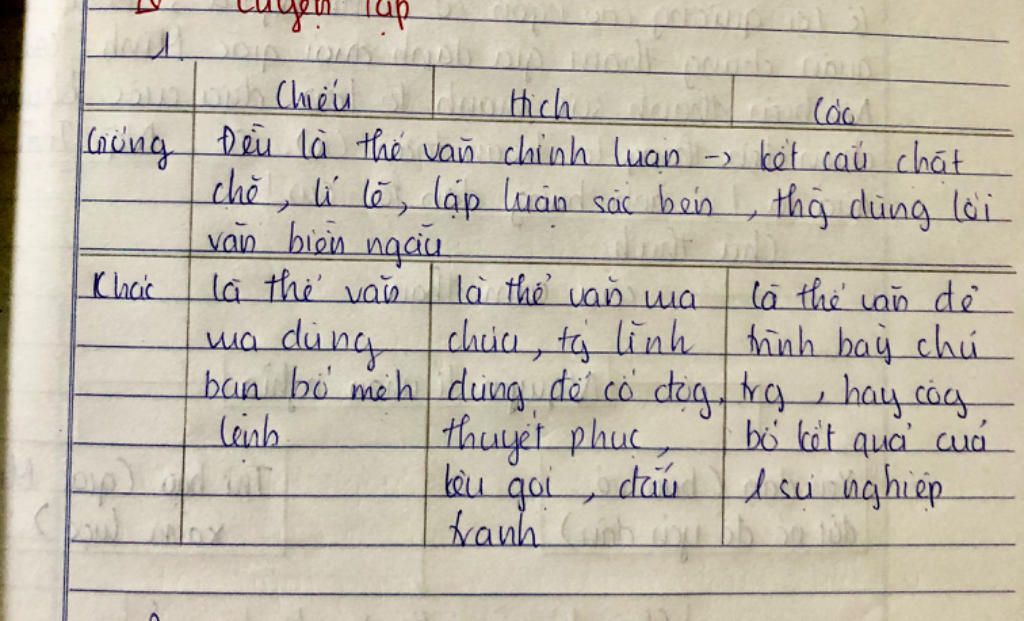 IV Luyện tập
1.
Chiếu Hịch Cáo
Giống Đều là thể văn chính luận -> kết cấu chặt
chẽ, lí lẽ, lập luận sắc bén, thg dùng lời
văn biền ngẫu
Khác là thể văn là thể văn vua là thể văn để
vua dùng chúa, tg lĩnh trình bày chủ
ban bố mệnh dùng để cổ độg, trg, hay côg
lệnh thuyết phục, bố kết quả của
kêu gọi, đấu 1 sự nghiệp
tranh